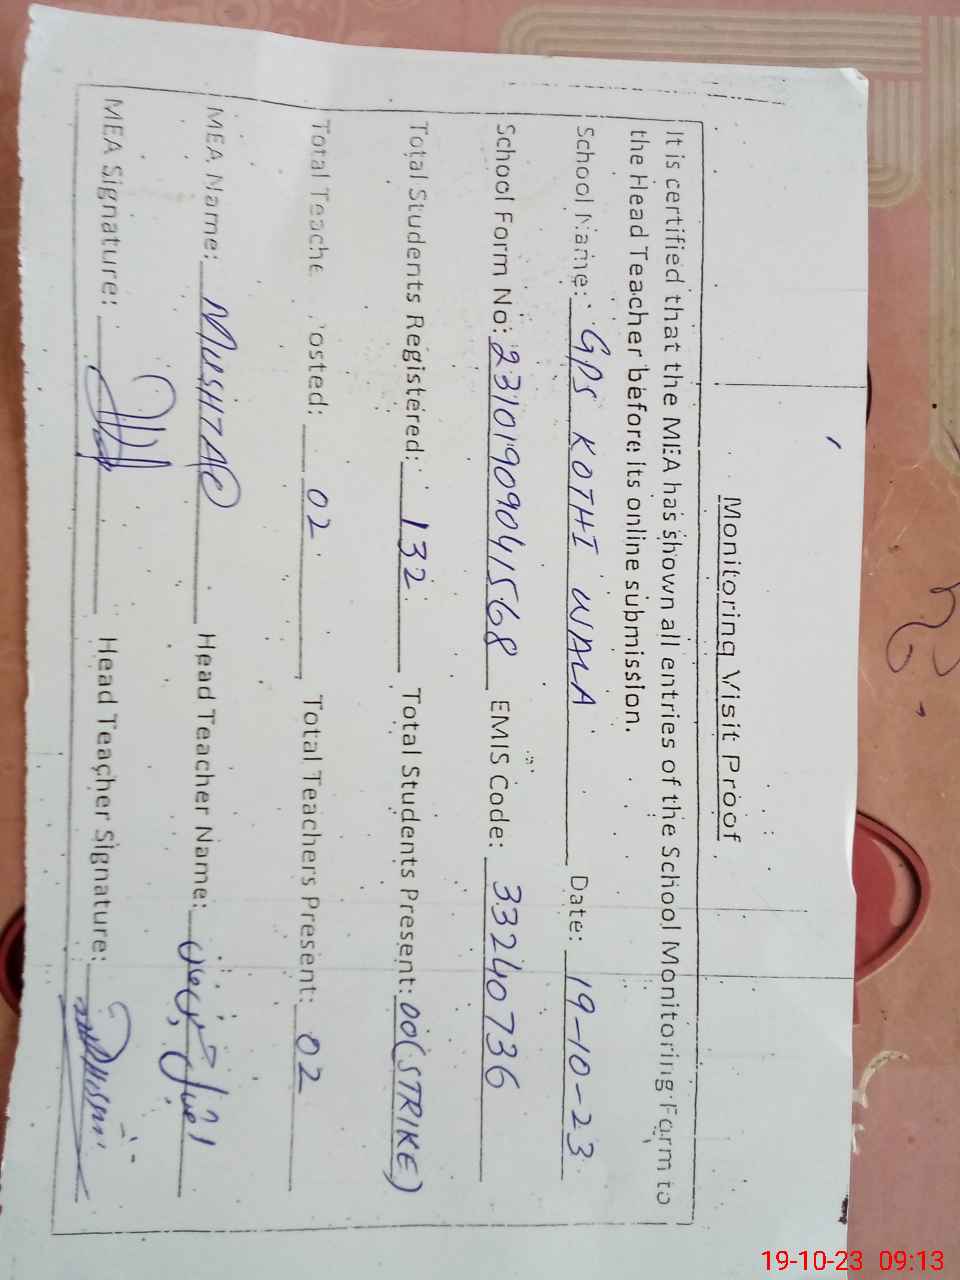 Monitoring Visit Proof
It is certified that the MEA has shown all entries of the School Monitoring Form to
the Head Teacher before its online submission.
School Name: GPS KOTHI WALA Date: 19-10-23
School Form No: 23101909041568 EMIS Code: 33240736
Total Students Registered: 132 Total Students Present: 00(STRIKE)
Total Teache osted: 02 Total Teachers Present: 02
MEA Name: MUSHTAQ Head Teacher Name:
MEA Signature: Head Teacher Signature:
19-10-23 09:13